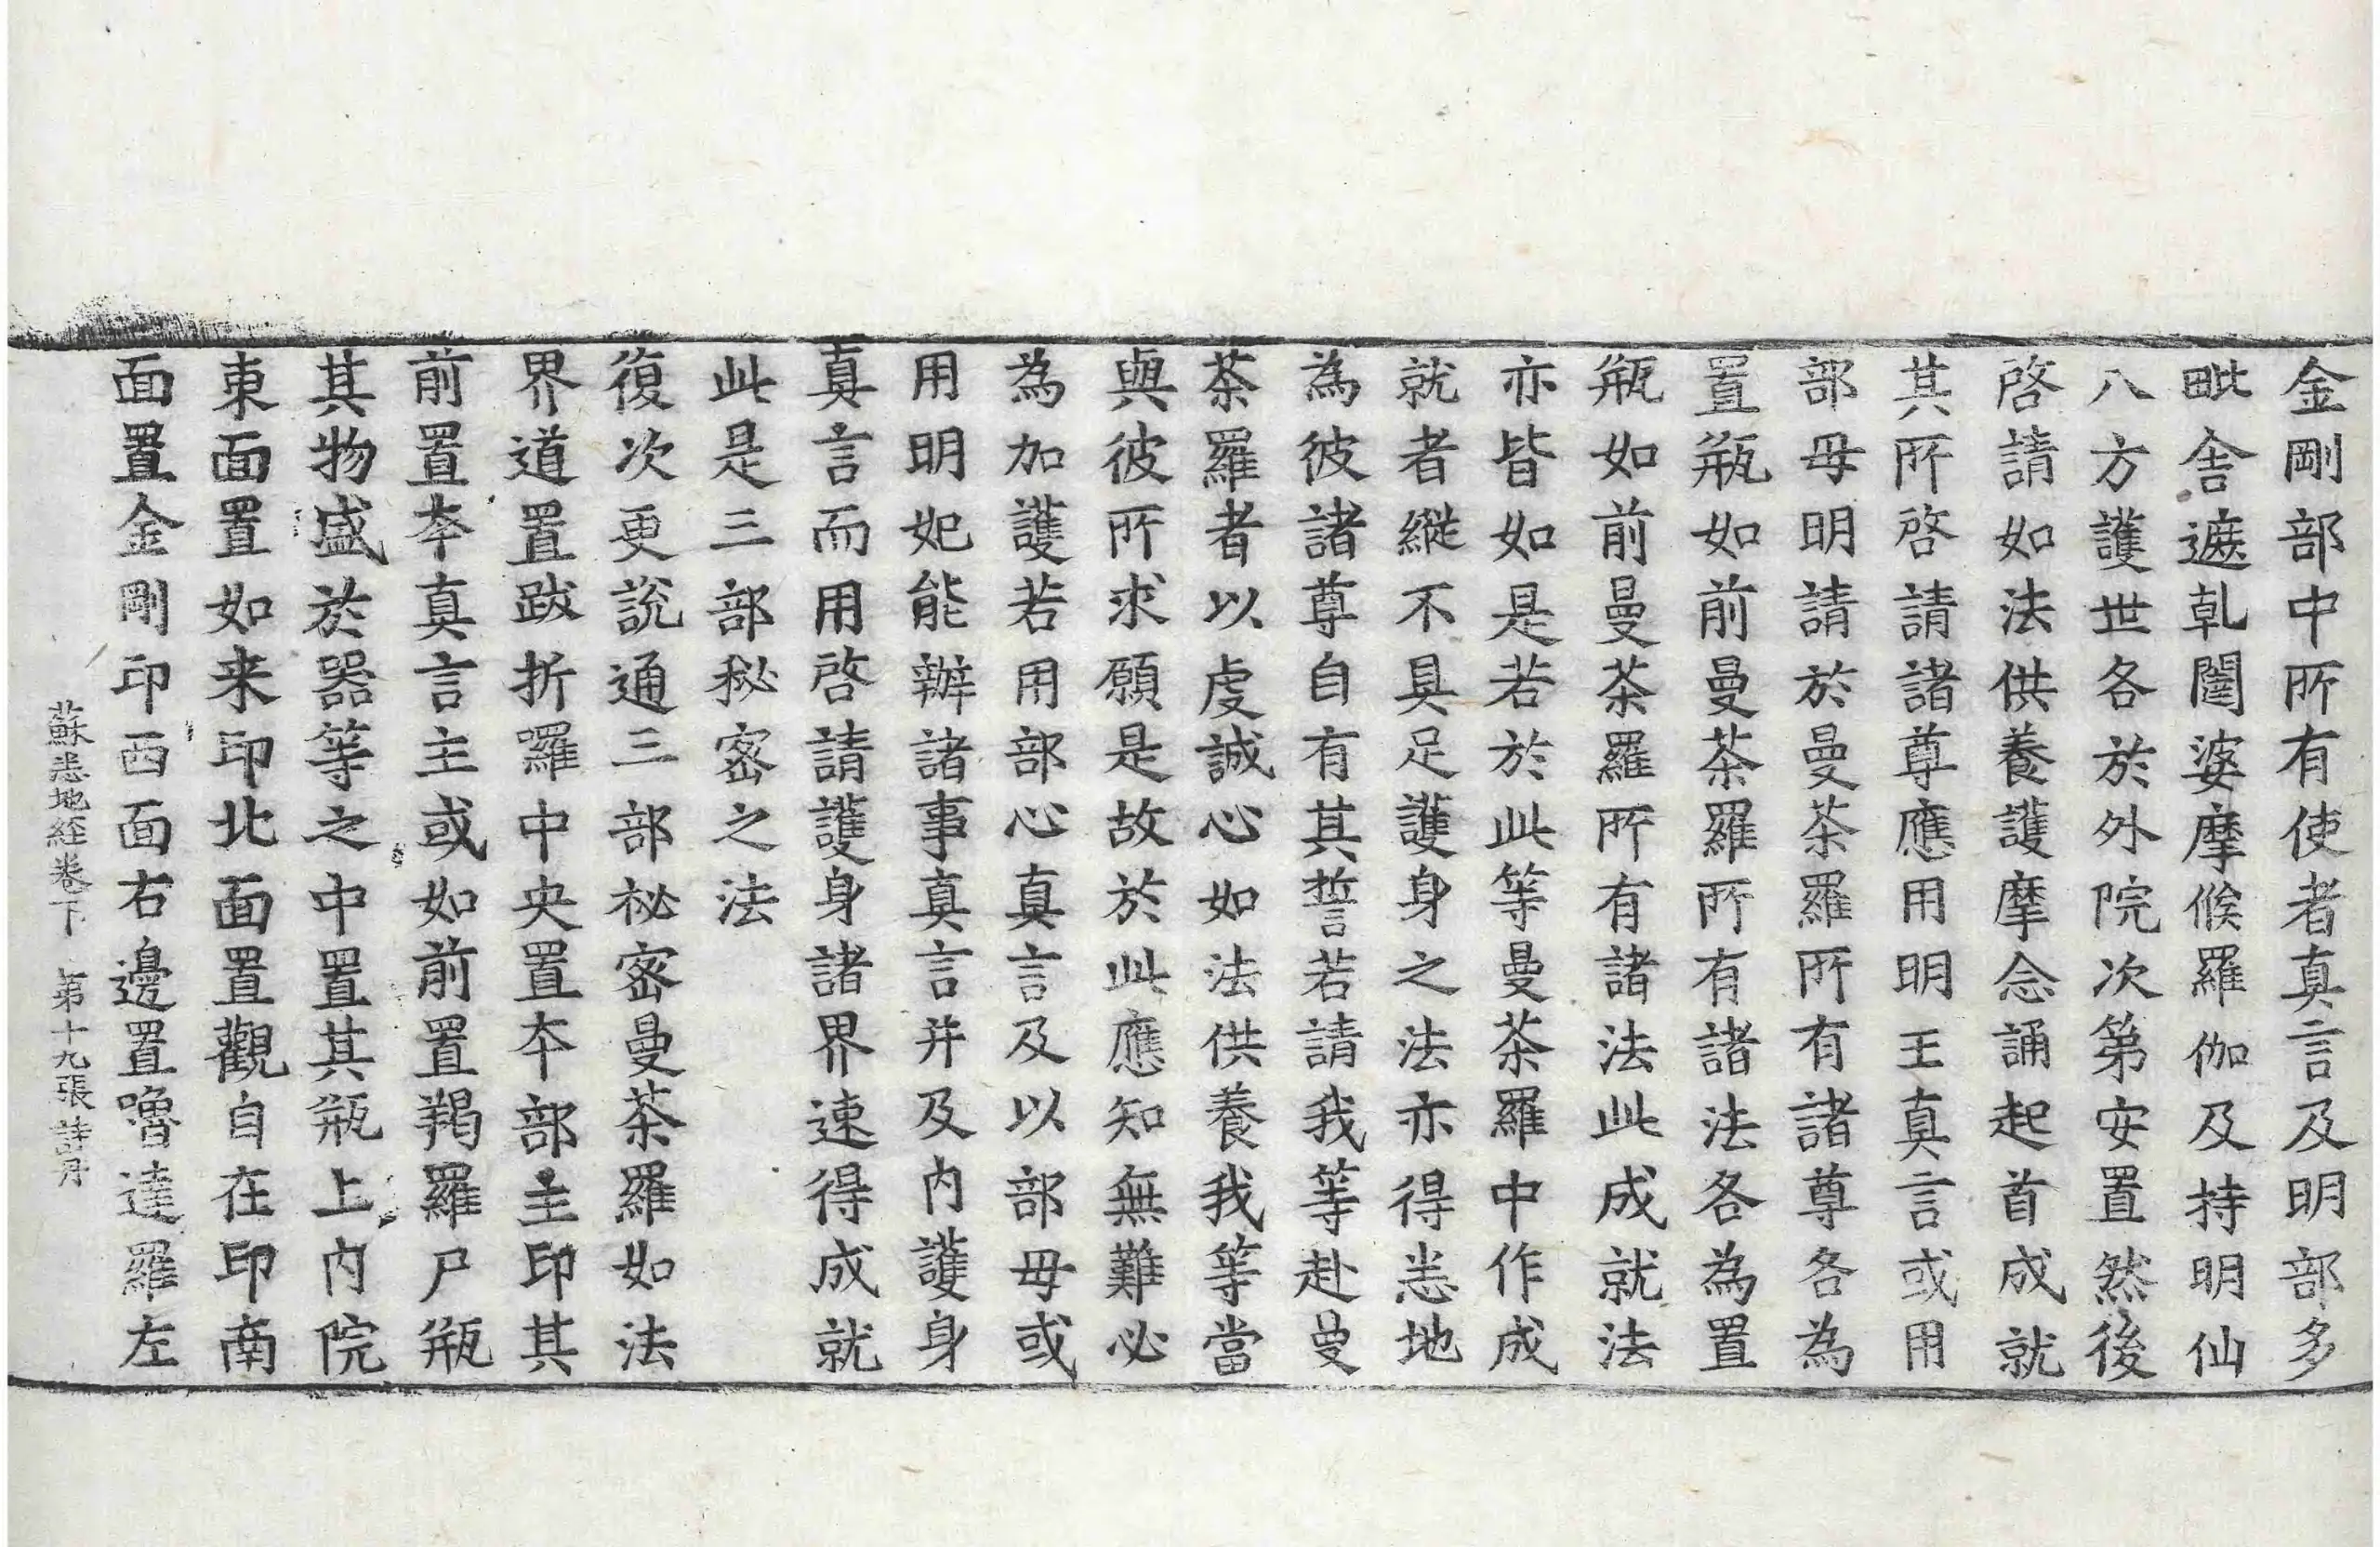 金剛部中所有使者真言及明部多
毗舍遮乹闥婆摩㬋羅伽及持明仙
八方護世各於外院次第安置然後
啓請如法供養護摩念誦起首成就
其所啓請諸尊應用明王真言或用
部母明請於曼茶羅所有諸尊各為
置瓶如前曼茶羅所有諸法各為置
瓶如前曼茶羅所有諸法此成就法
亦皆如是若於此等曼茶羅中作成
就者縱不具足護身之法亦得悉地
為彼諸尊自有其誓若請我等赴曼
茶羅者以虔誠心如法供養我等當
與彼所求願是故於此應知無難必
為加護若用部心真言及以部母或
用明妃能辦諸事真言并及内護身
真言而用啓請護身諸界速得成就
此是三部秘密之法
復次更說通三部秘密曼茶羅如法
界道置跋折囉中央置本部主印其
前置本真言主或如前置羯羅尸瓶
其物盛於器等之中置其瓶上内院
東面置如来印北面置觀自在印南
面置金剛印西面右邊置嚕達羅左
蘇悉地經卷下 第十九張 詩月